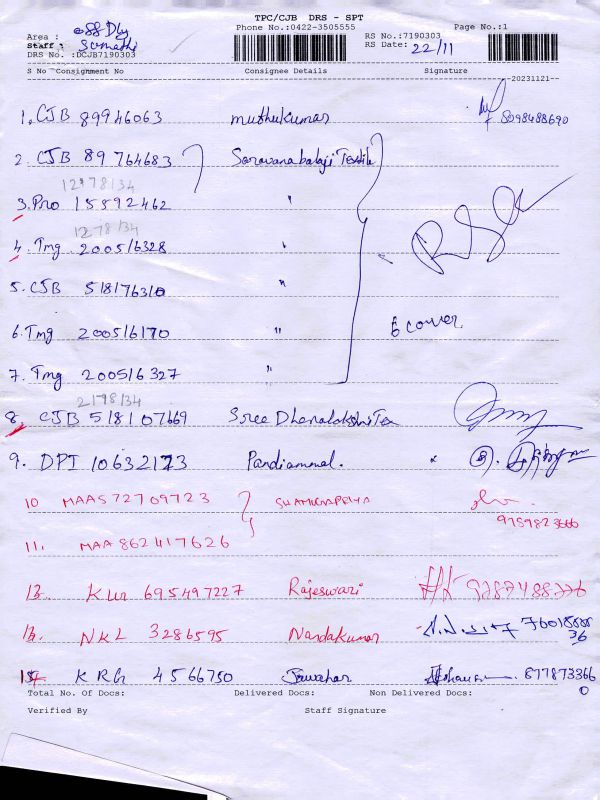 TPC/CJB DRS - SPT
Area : off Dly Phone No.:0422-3505555 Page No.:1
Staff : Sumathi RS No.:7190303
DRS No. :DCJB7190303 RS Date: 22/11
S No Consignment No Consignee Details Signature
20231121
1. CJB 89946063 muthukumar 8098488690
2. CJB 89764683 Saravanabalaji Textile
12178134
3. Pno 15892462 "
1278134
4. Tmg 200516328 "
5. CJB 518176310 "
6. Tmg 200516170 " 6 cover
7. Tmg 200516327 "
2178134
8. CJB 518107669 Sree Dhanalakshmi Tex
9. DPI 10632173 Pandiammal.
10 MAA572709723
9159823666
11. MAA 862417626
12. KUR 695497227 Rajeswari 9787488776
13. NKL 3286595 Nandakumar 76018888
36
14 KRG 4566750 Jawahar 877873366
0
Total No. of Docs: Delivered Docs: Non Delivered Docs:
Verified By Staff Signature